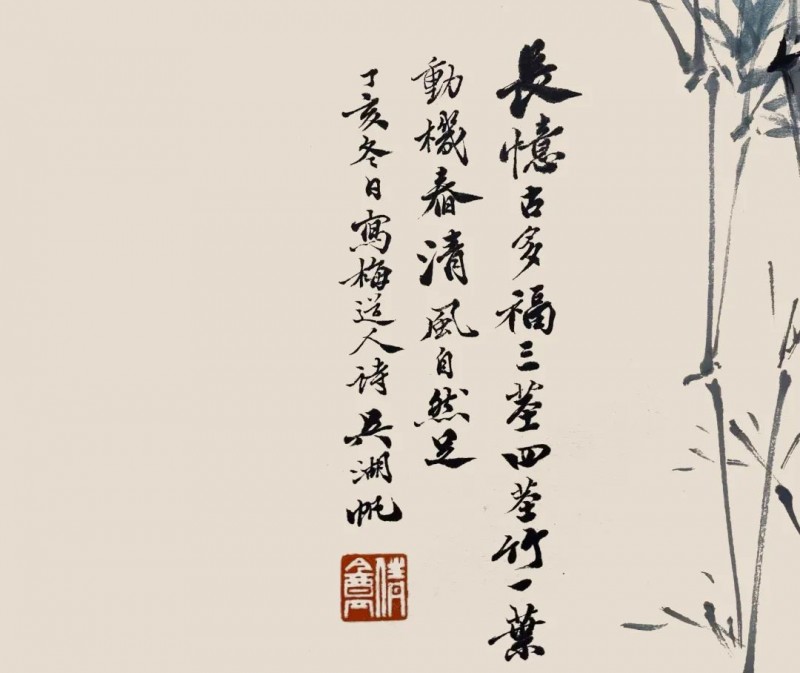 長憶古多福三莖四莖竹一葉
動機春清風自然足
丁亥冬日寫梅道人詩吳湖帆
倩盦